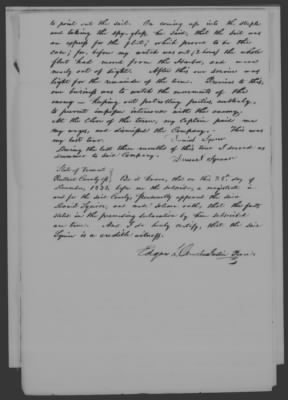 to point out the sail. On coming up into the steeple
and taking the spy-glass he said, that the sail was
an express for the fleet; which proved to be the
case; for, before my watch was out, (2 hours) the whole
fleet had moved from the Harbor, and were
nearly out of sight. After this our service was
light for the remainder of the term. Previous to this,
our business was to watch the movements of the
enemy — keeping out patrolling parties nightly,
to prevent improper intercourse with the enemy.
At the close of the term, my Captain paid me
my wages, and dismissed the Company. This was
my last tour. Squier
During the last three months of this tour I served as
drummer to said Company. Squier
State of Vermont
Rutland County ss. Be it known, that on this day of
December, 1832, before me the subscriber, a
for the said County, personally appeared the said
Squier, and made oath, that the facts
stated in the preceding declaration by him subscribed
are true. And I do hereby certify, that the said
Squier is a credible witness.
Edgar L.